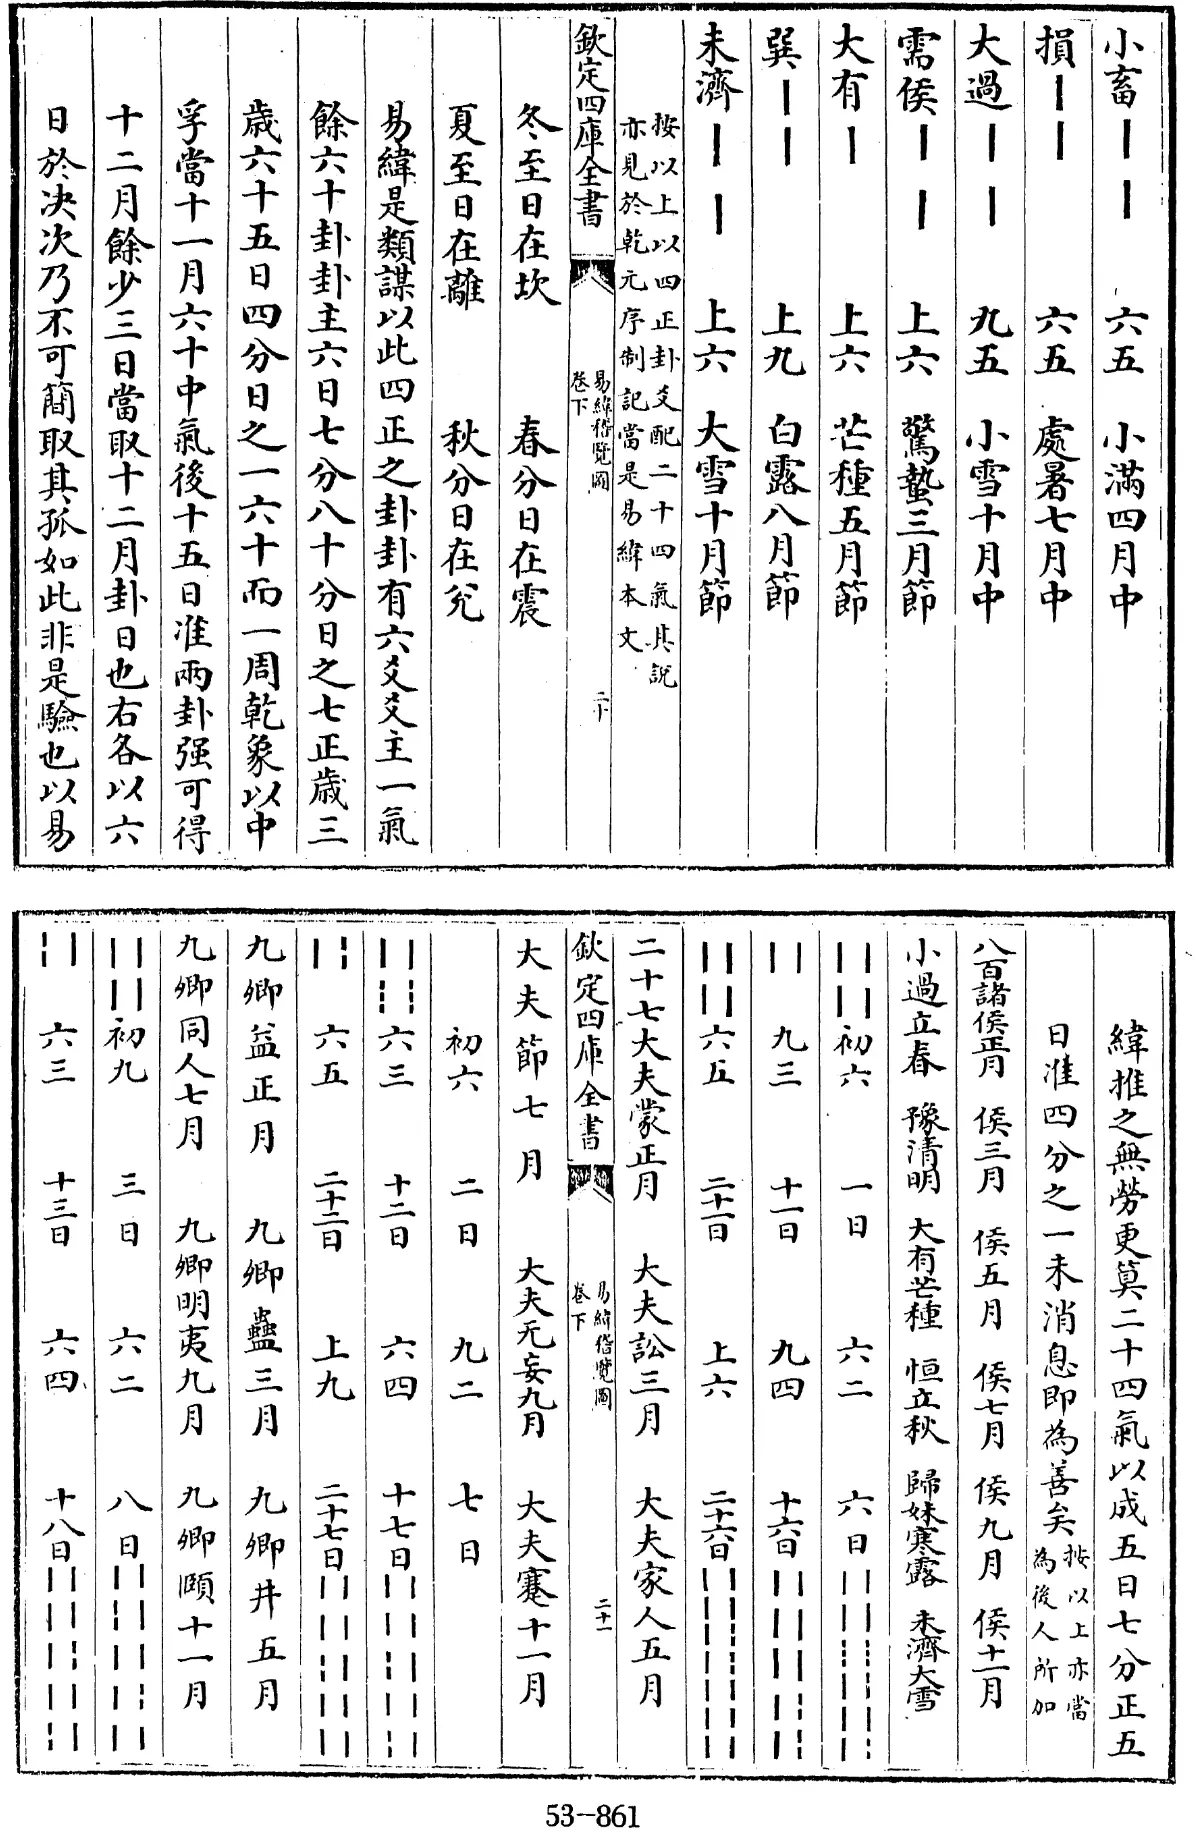 小畜 六五 小滿四月中
損 六五 處暑七月中
大過 九五 小雪十月中
需侯 上六 驚蟄三月節
大有 上六 芒種五月節
巽 上九 白露八月節
未濟 上六 大雪十月節
按以上以四正卦爻配二十四氣其說
亦見於乾元序制記當是易緯本文
欽定四庫全書
易緯稽覽圖
卷下
二十
冬至日在坎 春分日在震
夏至日在離 秋分日在兌
易緯是類謀以此四正之卦卦有六爻爻主一氣
餘六十卦卦主六日七分八十分日之七正歲三
歲六十五日四分日之一六十而一周乾象以中
孚當十一月六十中氣後十五日准兩卦强可得
十二月餘少三日當取十二月卦日也右各以六
日於决次乃不可簡取其孤如此非是驗也以易
緯推之無勞更算二十四氣以成五日七分正五
日准四分之一未消息即為善矣
按以上亦當
為後人所加
八百諸侯正月 侯三月 侯五月 侯七月 侯九月 侯十一月
小過立春 豫清明 大有芒種 恒立秋 歸妹寒露 未濟大雪
初六 一日 六二 六日
九三 十一日 九四 十六日
六五 二十一日 上六 二十六日
二十七大夫蒙正月 大夫訟三月 大夫家人五月
欽定四庫全書
易緯稽覽圖
卷下
二十一
大夫節七月 大夫无妄九月 大夫蹇十一月
初六 二日 九二 七日
六三 十二日 六四 十七日
六五 二十二日 上九 二十七日
九卿益正月 九卿蠱三月 九卿井五月
九卿同人七月 九卿明夷九月 九卿頤十一月
初九 三日 六二 八日
六三 十三日 六四 十八日
53--861